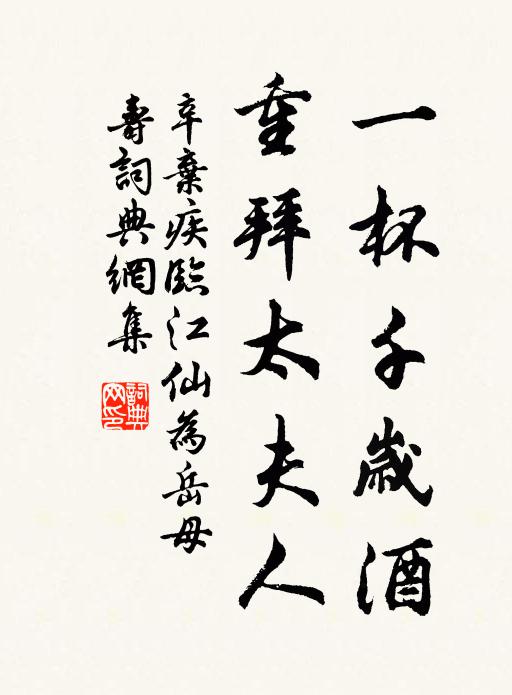 一杯千歲酒
重拜太夫人
辛棄疾臨江仙為岳母
壽詞典網集
詞典網印